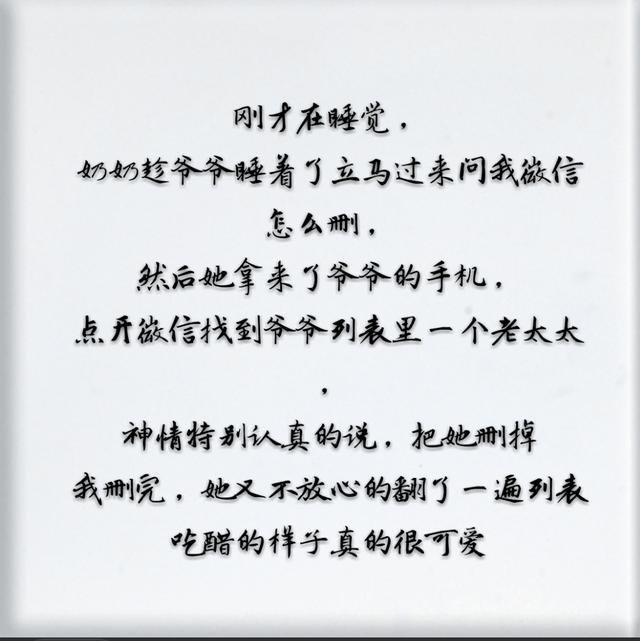 刚才在睡觉，
奶奶趁爷爷睡着了立马过来问我微信
怎么删，
然后她拿来了爷爷的手机，
点开微信找到爷爷列表里一个老太太
，
神情特别认真的说，把她删掉
我删完，她又不放心的翻了一遍列表
吃醋的样子真的很可爱